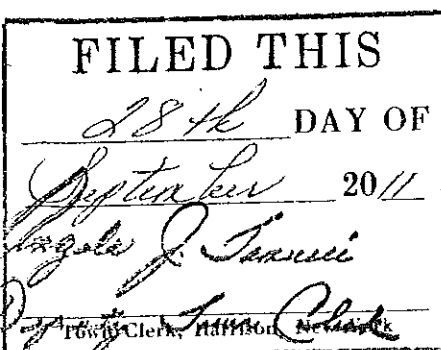 FILED THIS
28th DAY OF
September 2011
Angela J.
Deputy Town Clerk
Town Clerk, Harrison, New York